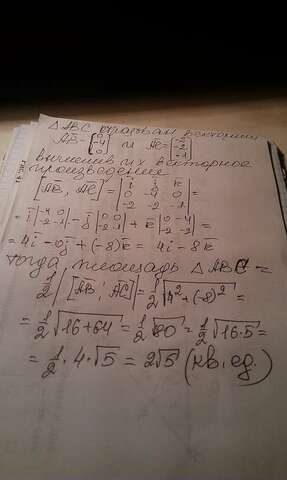 △ABC образован векторами
AB = {0 -4 0} и AC = {-2 -2 -1}
вычислив их векторное
произведение
[AB, AC] = |i j k; 0 -4 0; -2 -2 -1| =
= i |-4 0; -2 -1| - j |0 0; -2 -1| + k |0 -4; -2 -2| =
= 4i - 0j + (-8)k = 4i - 8k
тогда площадь △ABC =
1/2 |[AB, AC]| = 1/2 √(4² + (-8)²) =
= 1/2 √(16+64) = 1/2 √80 = 1/2 √(16·5) =
= 1/2 · 4 · √5 = 2√5 (кв. ед.)